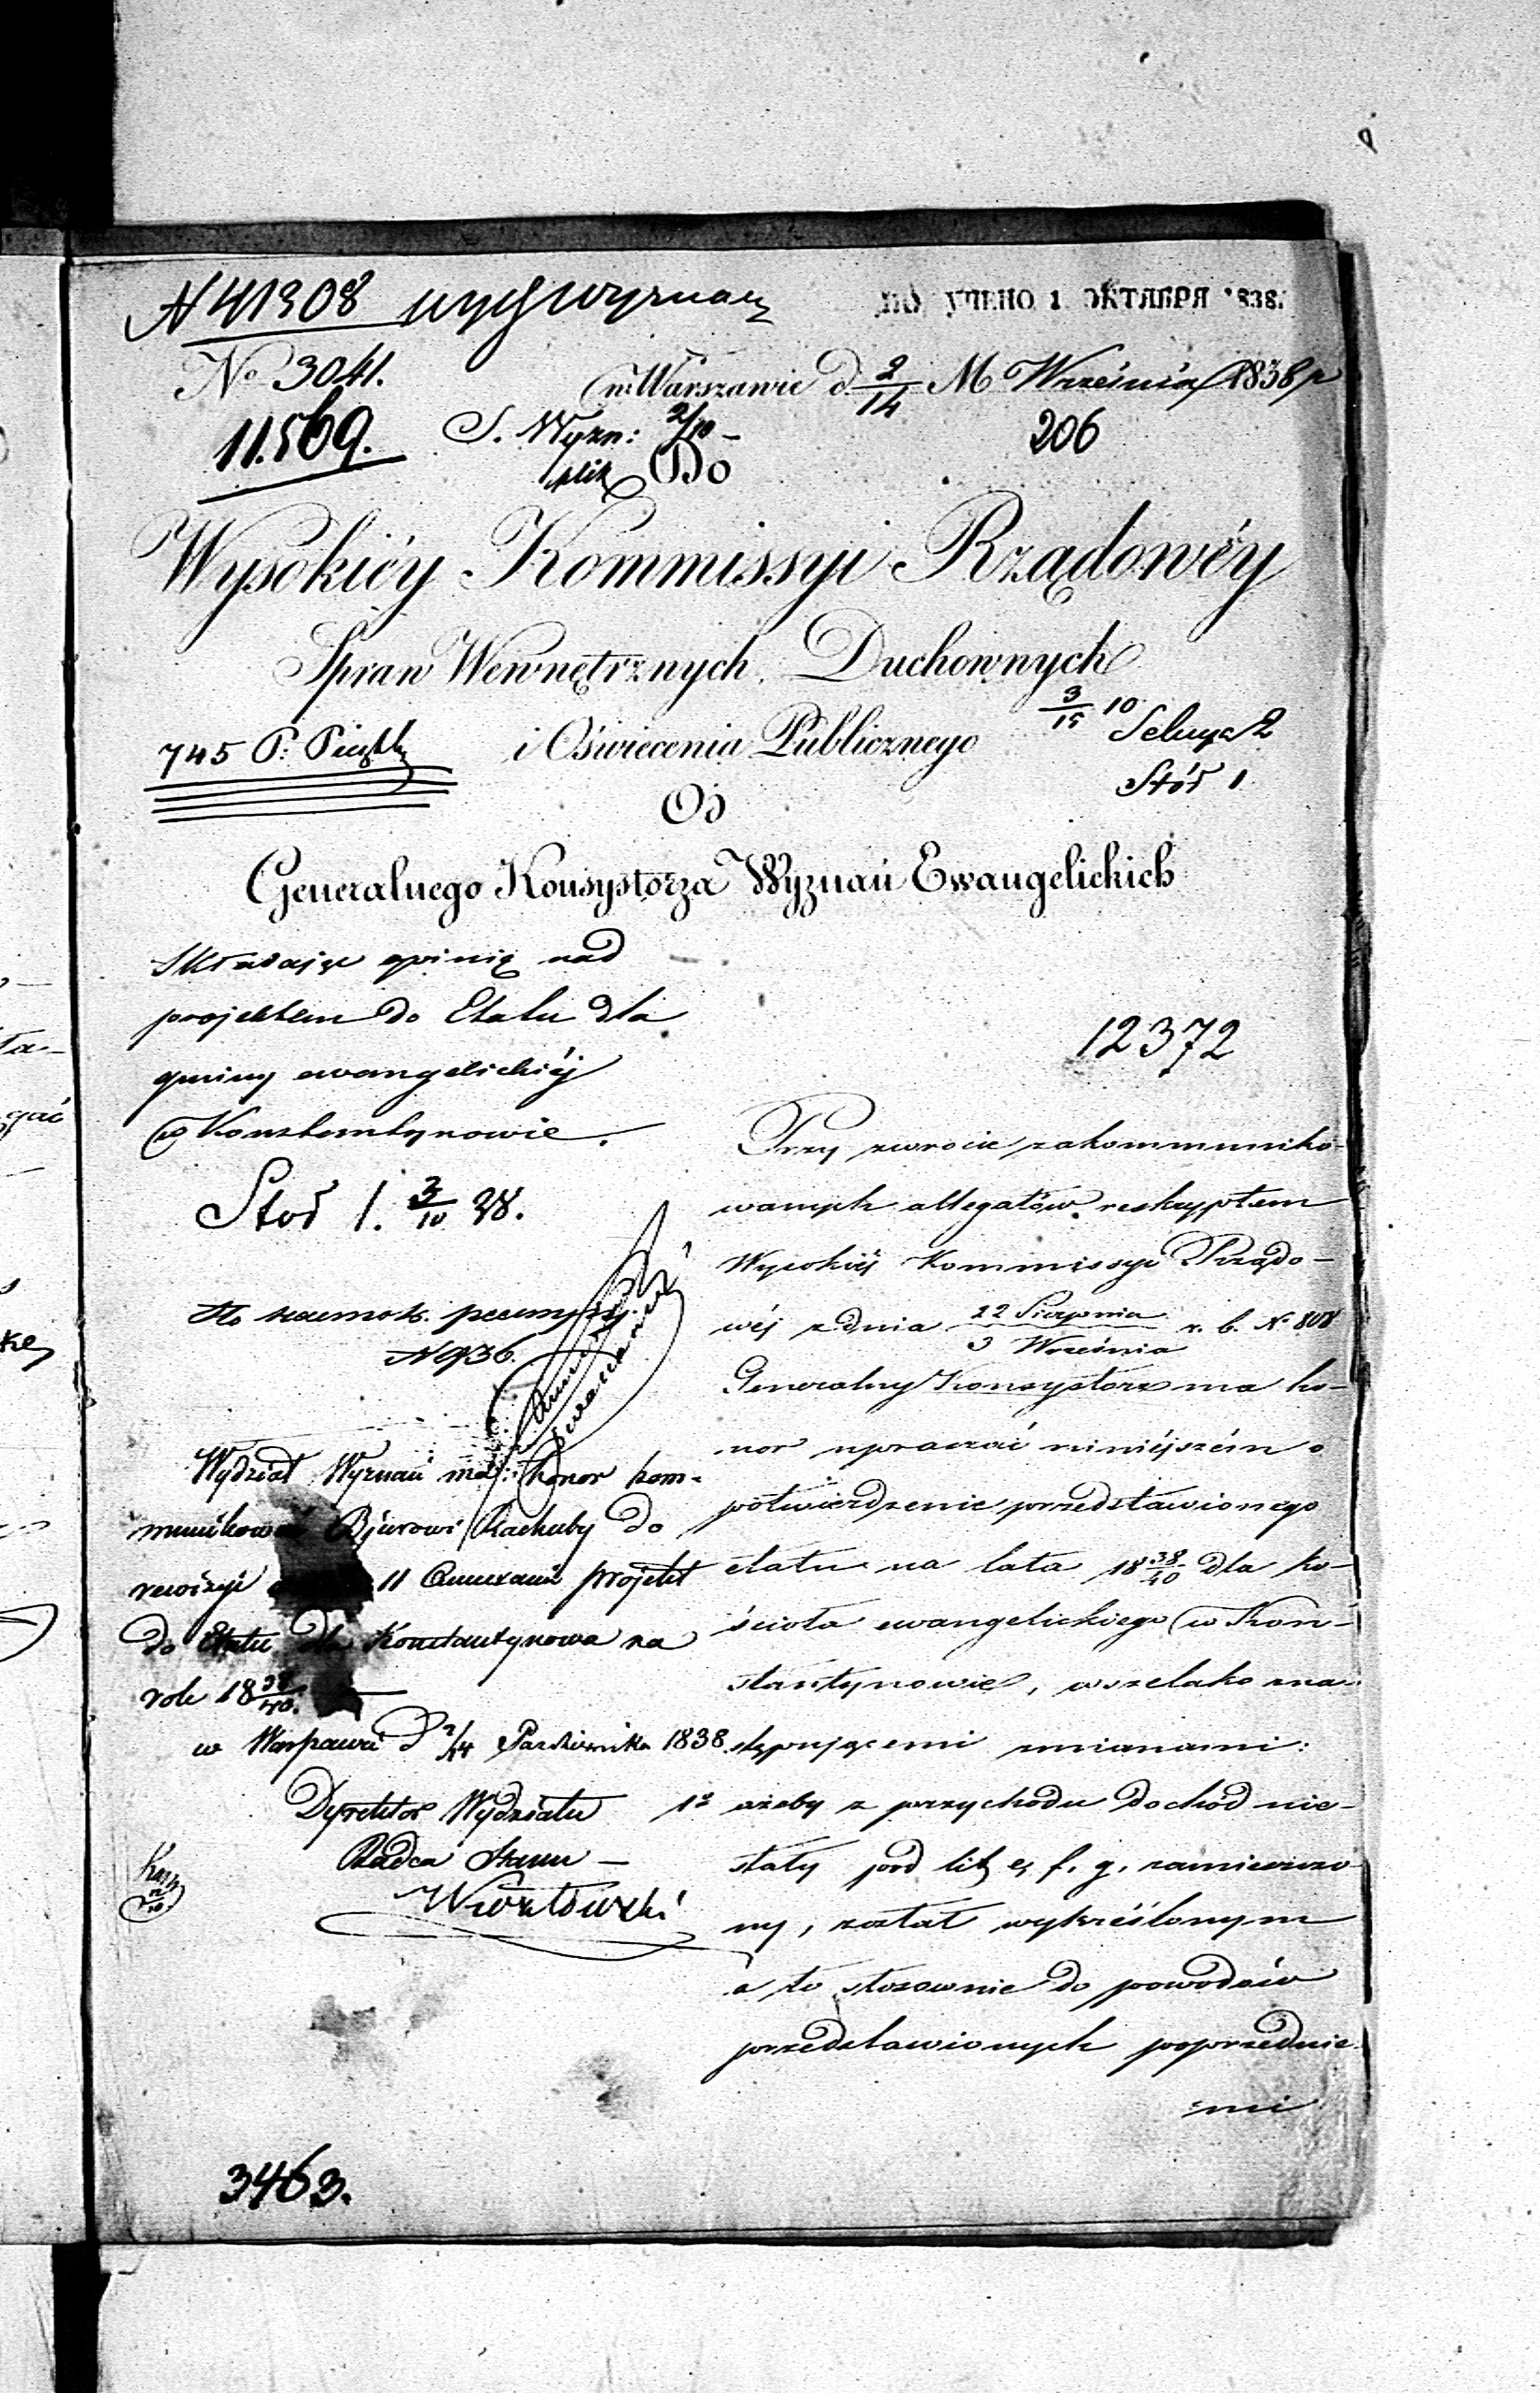 N 41308
ПОЛУЧЕНО 1 ОКТЯБРЯ 1838.
No 3041.
w Warszawie d. 2/14 M Września 1838 r
11.569.
S. Wyzn: 2/10 –
206
Do
Wysokiéy Kommissyi Rządowéy
Spraw Wewnętrznych, Duchownych
i Oświecenia Publicznego
3/15 10
Sekcya 2
Stół 1
745 P. Piczeta
Od
Generalnego Konsystorza Wyznań Ewangelickich
Składając opinią nad
projektem do Etatu dla
gminy ewangelickiéj
w Konstantynowie.
12372
Stół 1. 3/10 38.
N 936.
Wydział Wyznań ma honor kom-
munikować Bjurowi Rachuby do
rewizyi 11 Annexami projekt
do Etatu dla Konstantynowa na
rok 18 38/40.
w Warszawie d 2/14 Pazdziernika 1838
Dyrektor Wydziału
Radca Stanu –
Przy zwrocie zakommuniko-
wanych allegatów reskryptem
Wysokiéj Kommissyi Rządo-
wéj z dnia 22 Sierpnia / 3 Września r. b. No 808
Generalny Konsystorz ma ho-
nor upraszać niniéjszém o
potwierdzenie przedstawionego
etatu na lata 18 38/40 dla ko-
ścioła ewangelickiego w Kon-
stantynowie, wszelako z na-
stępującemi zmianami:
1o ażeby z przychodu dochód nie-
stały pod lit. e, f. g. zamieszczo-
ny, został wykreślonym
a to stosownie do powodów
przedstawionych poprzednie-
mi
3463.